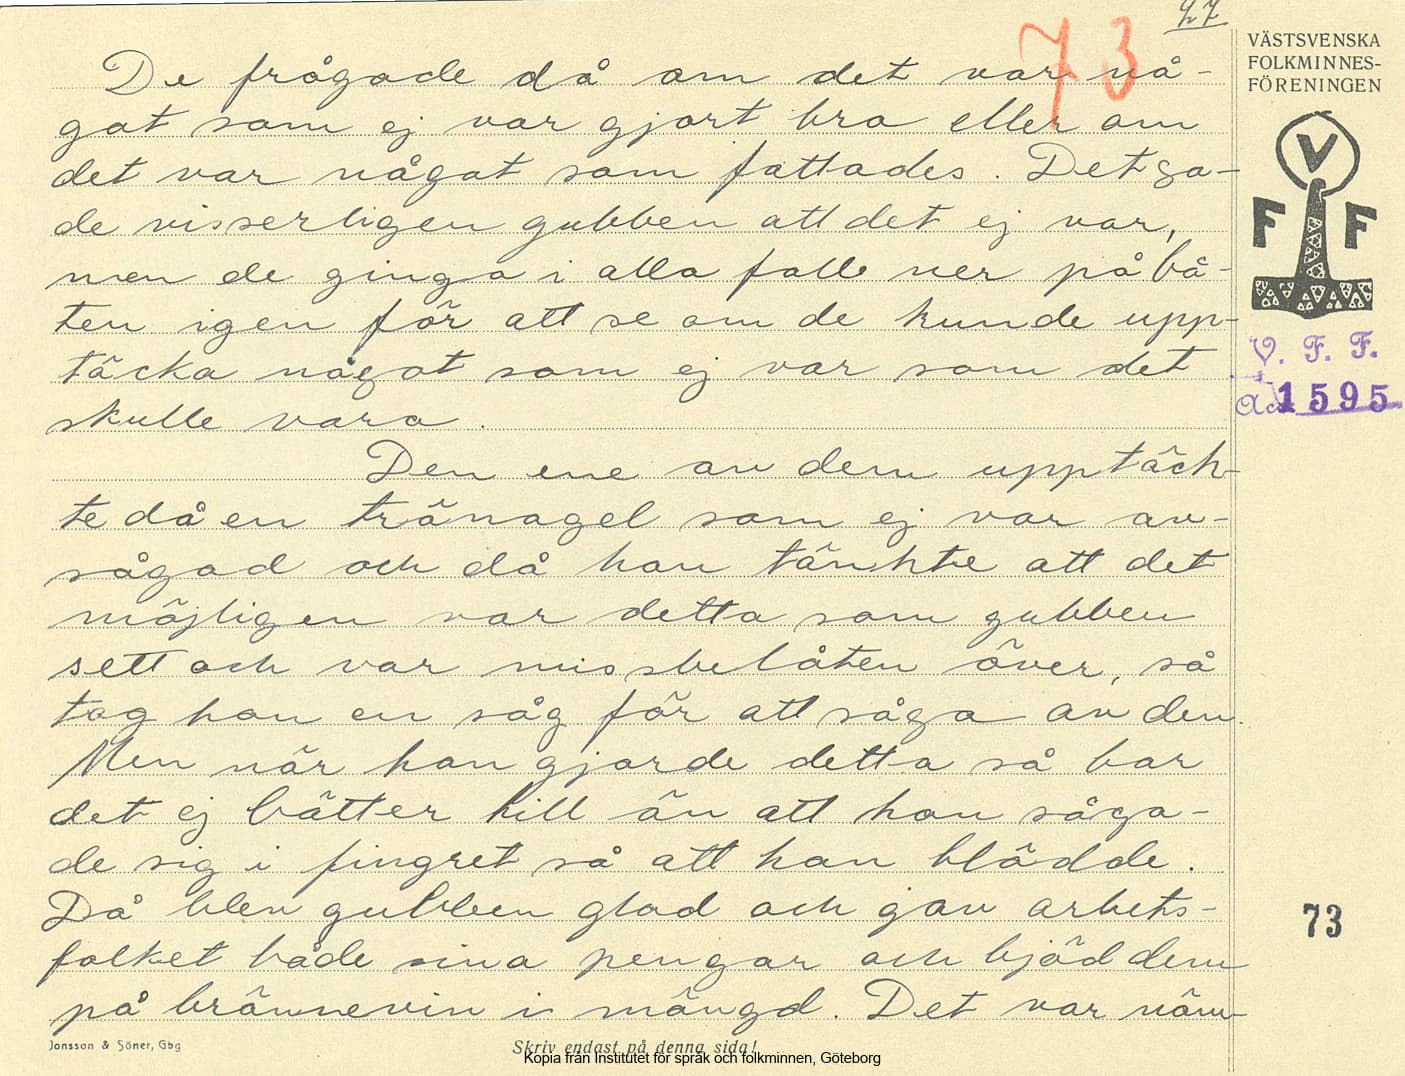 27
73
VÄSTSVENSKA
FOLKMINNES-
FÖRENINGEN
V
F F
V. F. F.
1595
De frågade då om det var nå-
got som ej var gjort bra eller om
det var något som fattades. Det sa-
de visserligen gubben att det ej var,
men de gingo i alla falle ner på bå-
ten igen för att se om de kunde upp-
täcka något som ej var som det
skulle vara.
Den ene av dem upptäck-
te då en tränagel som ej var av-
sågad och då han tänkte att det
möjligen var detta som gubben
sett och var missbelåten över, så
tog han en såg för att såga av den.
Men när han gjorde detta så bar
det ej bätter till än att han såga-
de sig i fingret så att han blödde.
Då blev gubben glad och gav arbets-
folket både sina pengar och bjöd dem
på brännevin i mängd. Det var näm-
73
Jonsson & Söner, Gbg
Skriv endast på denna sida!
Kopia från Institutet för språk och folkminnen, Göteborg